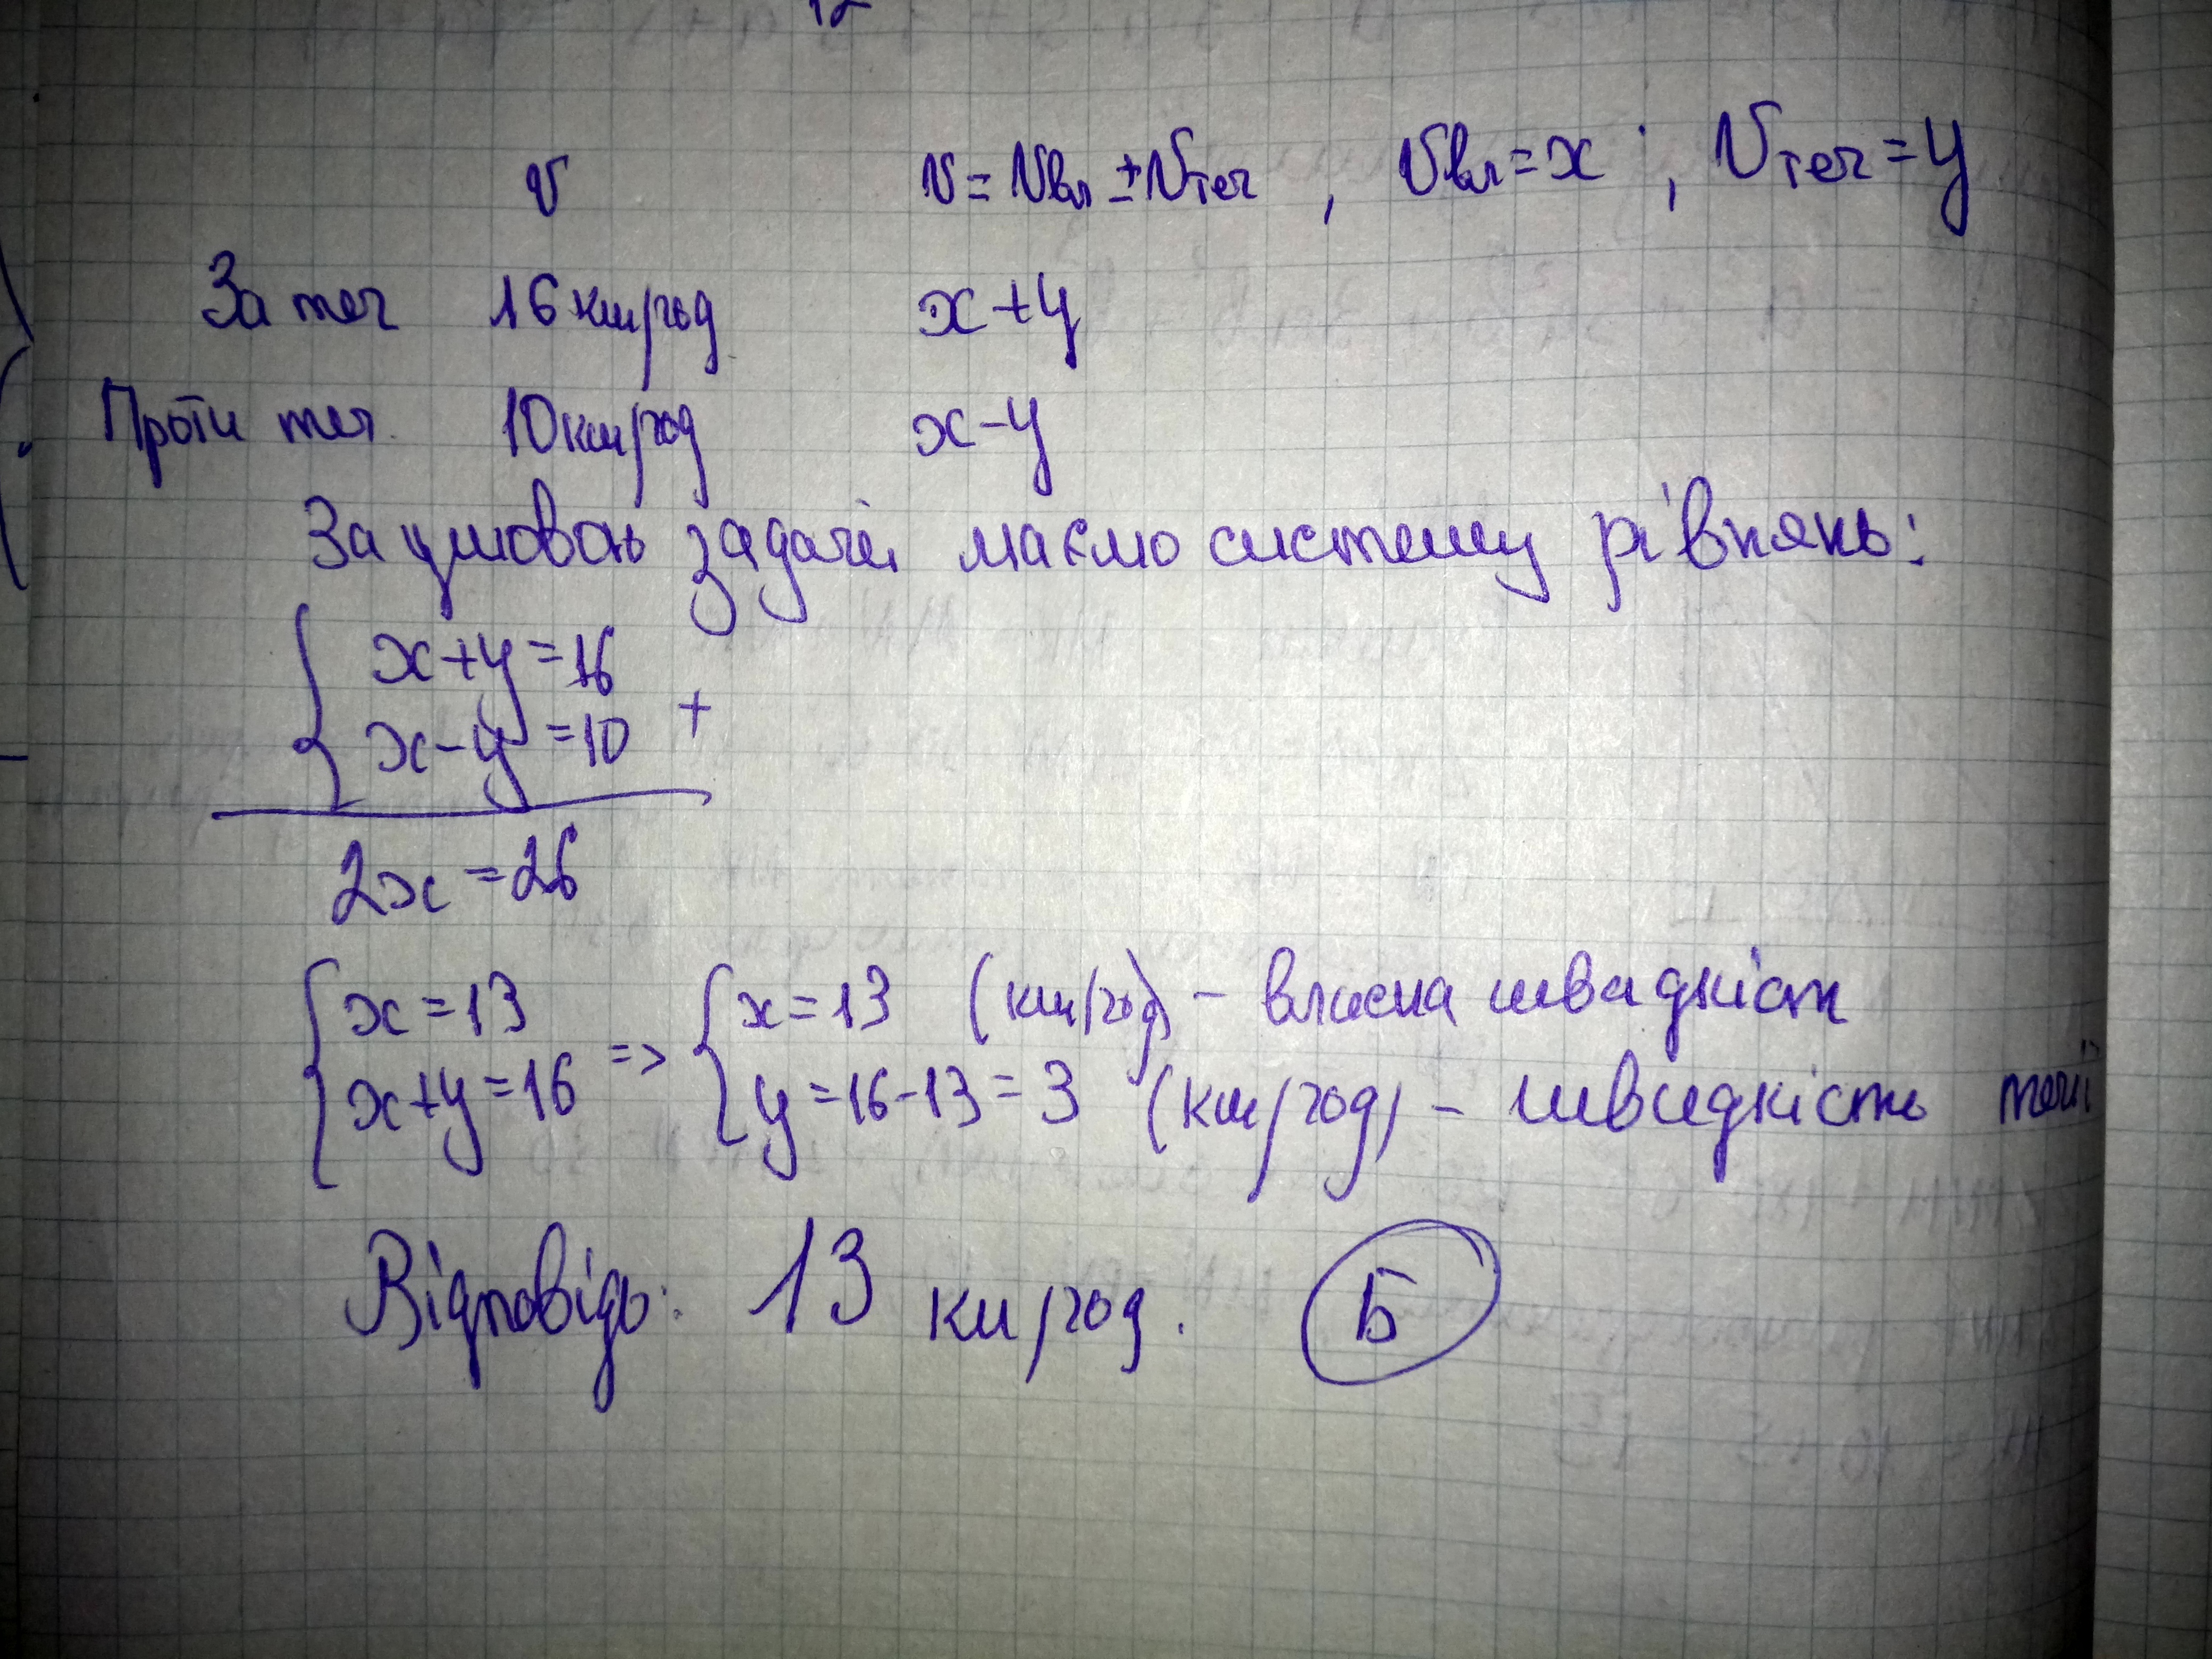 12
v v = vвл ± vтеч , vвл = x ; vтеч = y
За теч 16 км/год x + y
Проти теч. 10 км/год x - y
За умовою задачі маємо систему рівнянь:
x + y = 16
x - y = 10 +
2x = 26
x = 13 x = 13 (км/год) - власна швидкість
x + y = 16 => y = 16 - 13 = 3 (км/год) - швидкість течії
Відповідь: 13 км/год. Б